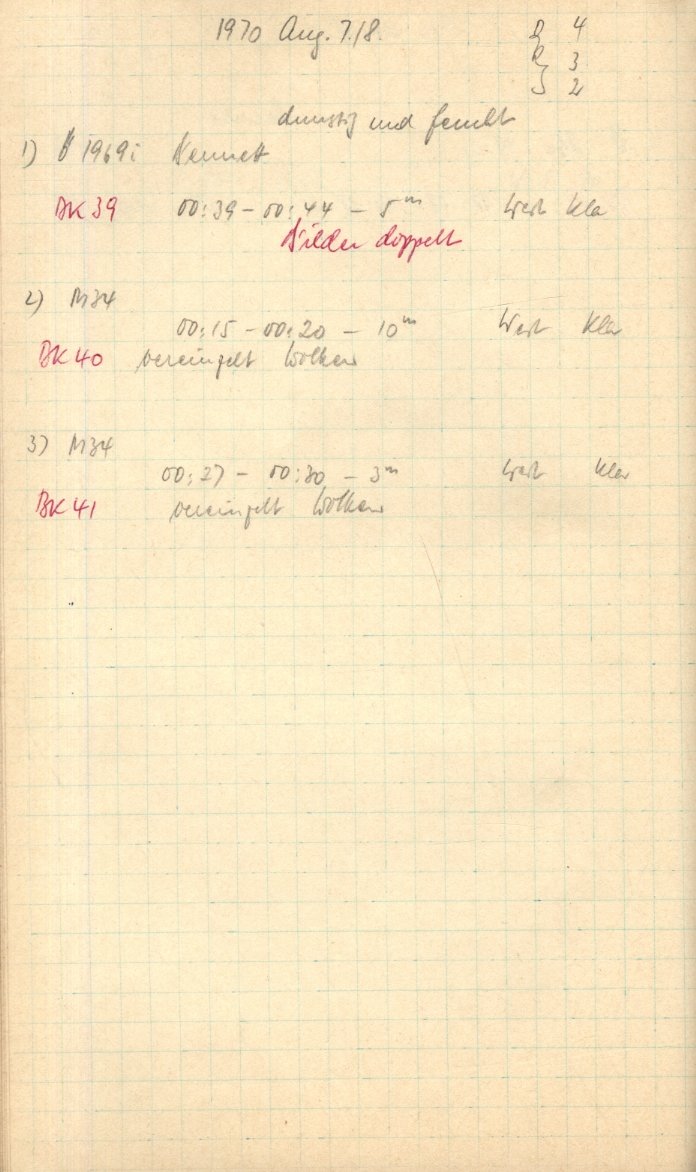 1970 Aug. 7./8.
4
3
2
dunstig und feucht
1) 1969i Bennett
BK 39 00:39 - 00:44 - 5m West klar
Bilder doppelt
2) M34
00:15 - 00:20 - 10m West klar
BK 40 vereinzelt Wolken
3) M34
00:27 - 00:30 - 3m West klar
BK 41 vereinzelt Wolken